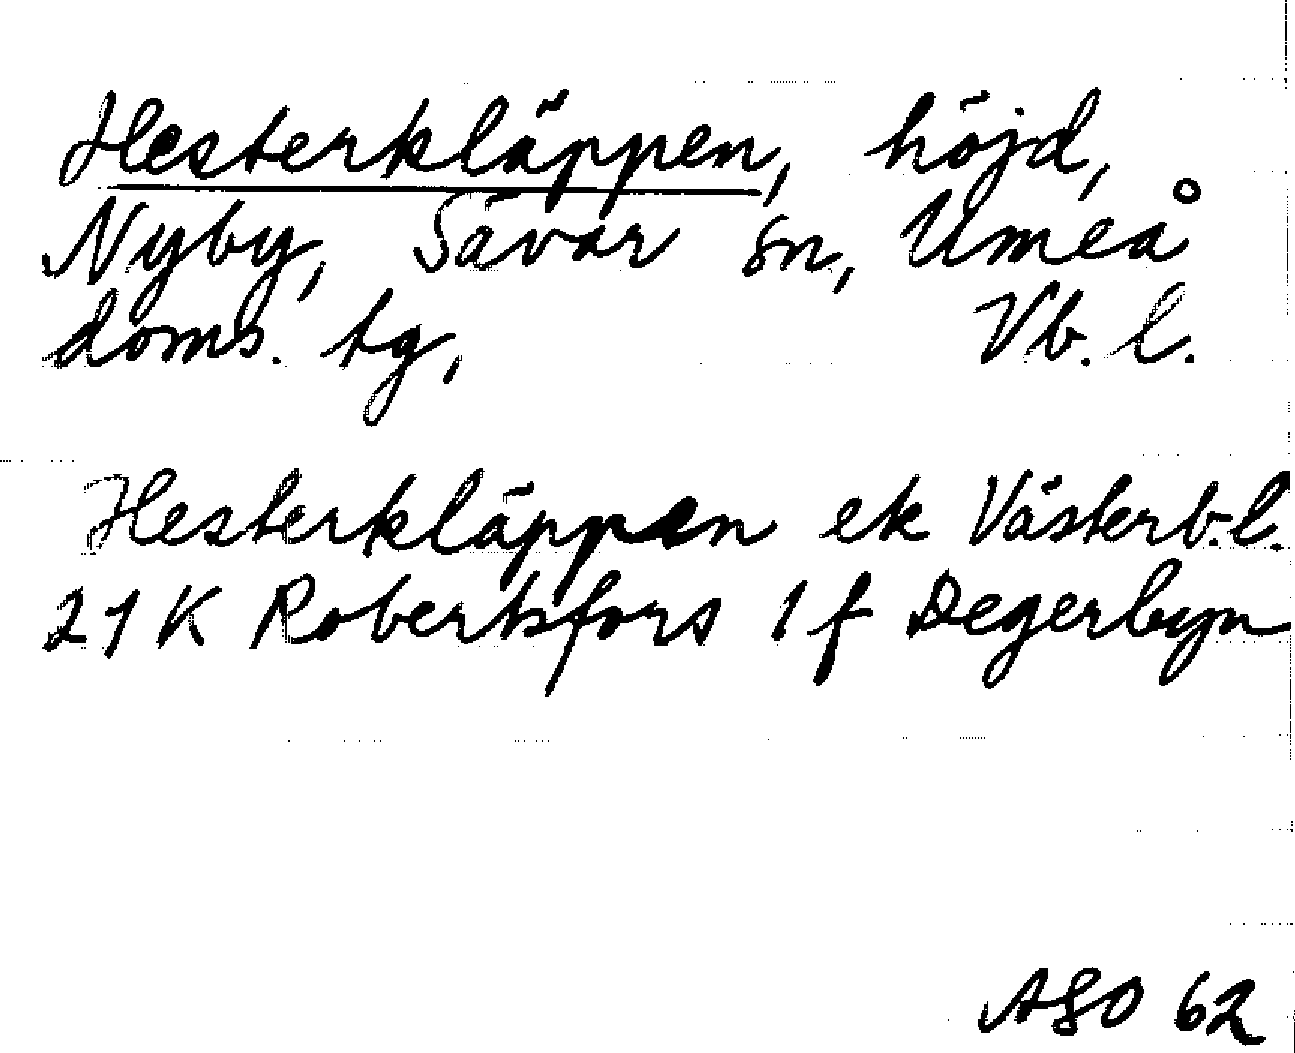 Hesterkläppen, höjd,
Nyby, Sävar sn, Umeå
doms. tg, Vb. l.
Hesterkläppen ek Västerb.l.
21 K Robertsfors 1 f Degerbyn
ASO 62